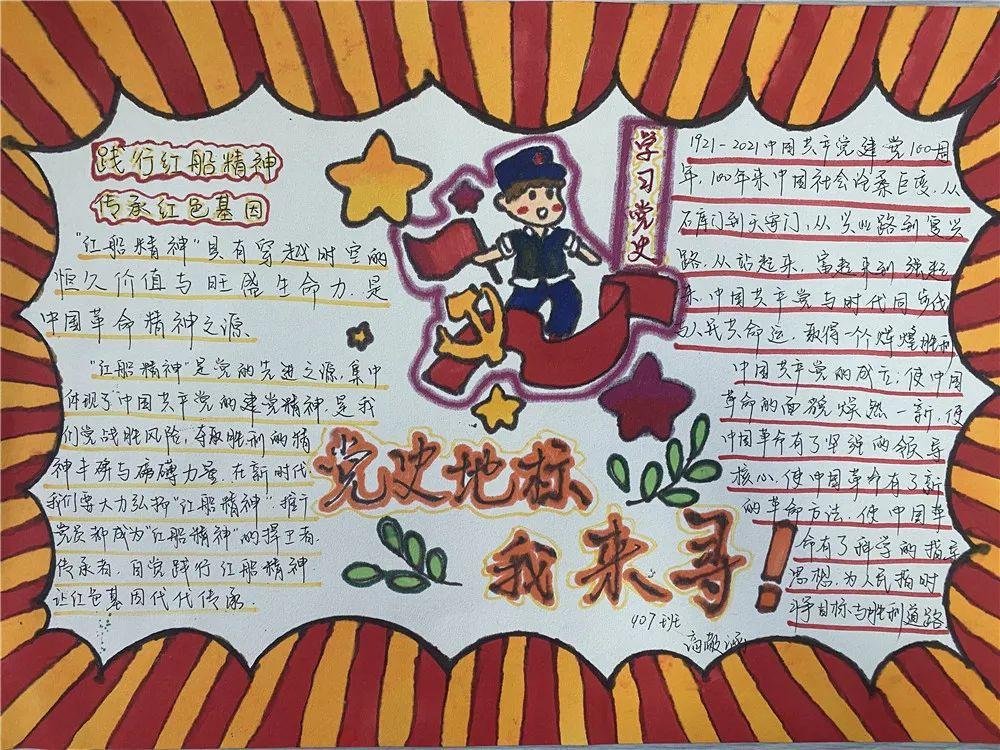 践行红船精神
传承红色基因
"红船精神"具有穿越时空的
恒久价值与旺盛生命力,是
中国革命精神之源
"红船精神"是党的先进之源,集中
体现了中国共产党的建党精神,是我
们党战胜风险,夺取胜利的精
神丰碑与磅礴力量,在新时代
我们要大力弘扬"红船精神",推广
党员都成为"红船精神"的捍卫者,
传承者,自觉践行红船精神,
让红色基因代代传承
学习党史
1921-2021中国共产党建党100周
年,100年来中国社会沧桑巨变,从
石库门到天安门,从兴业路到复兴
路,从站起来,富起来到强起
来,中国共产党与时代同步伐
与人民共命运,取得一个个辉煌胜利
中国共产党的成立,使中国
革命的面貌焕然一新,使
中国革命有了坚强的领导
核心,使中国革命有了新
的革命方法,使中国革
命有了科学的指导
思想,为人民指明
目标与胜利道路
党史地标
我来寻!
407班
高